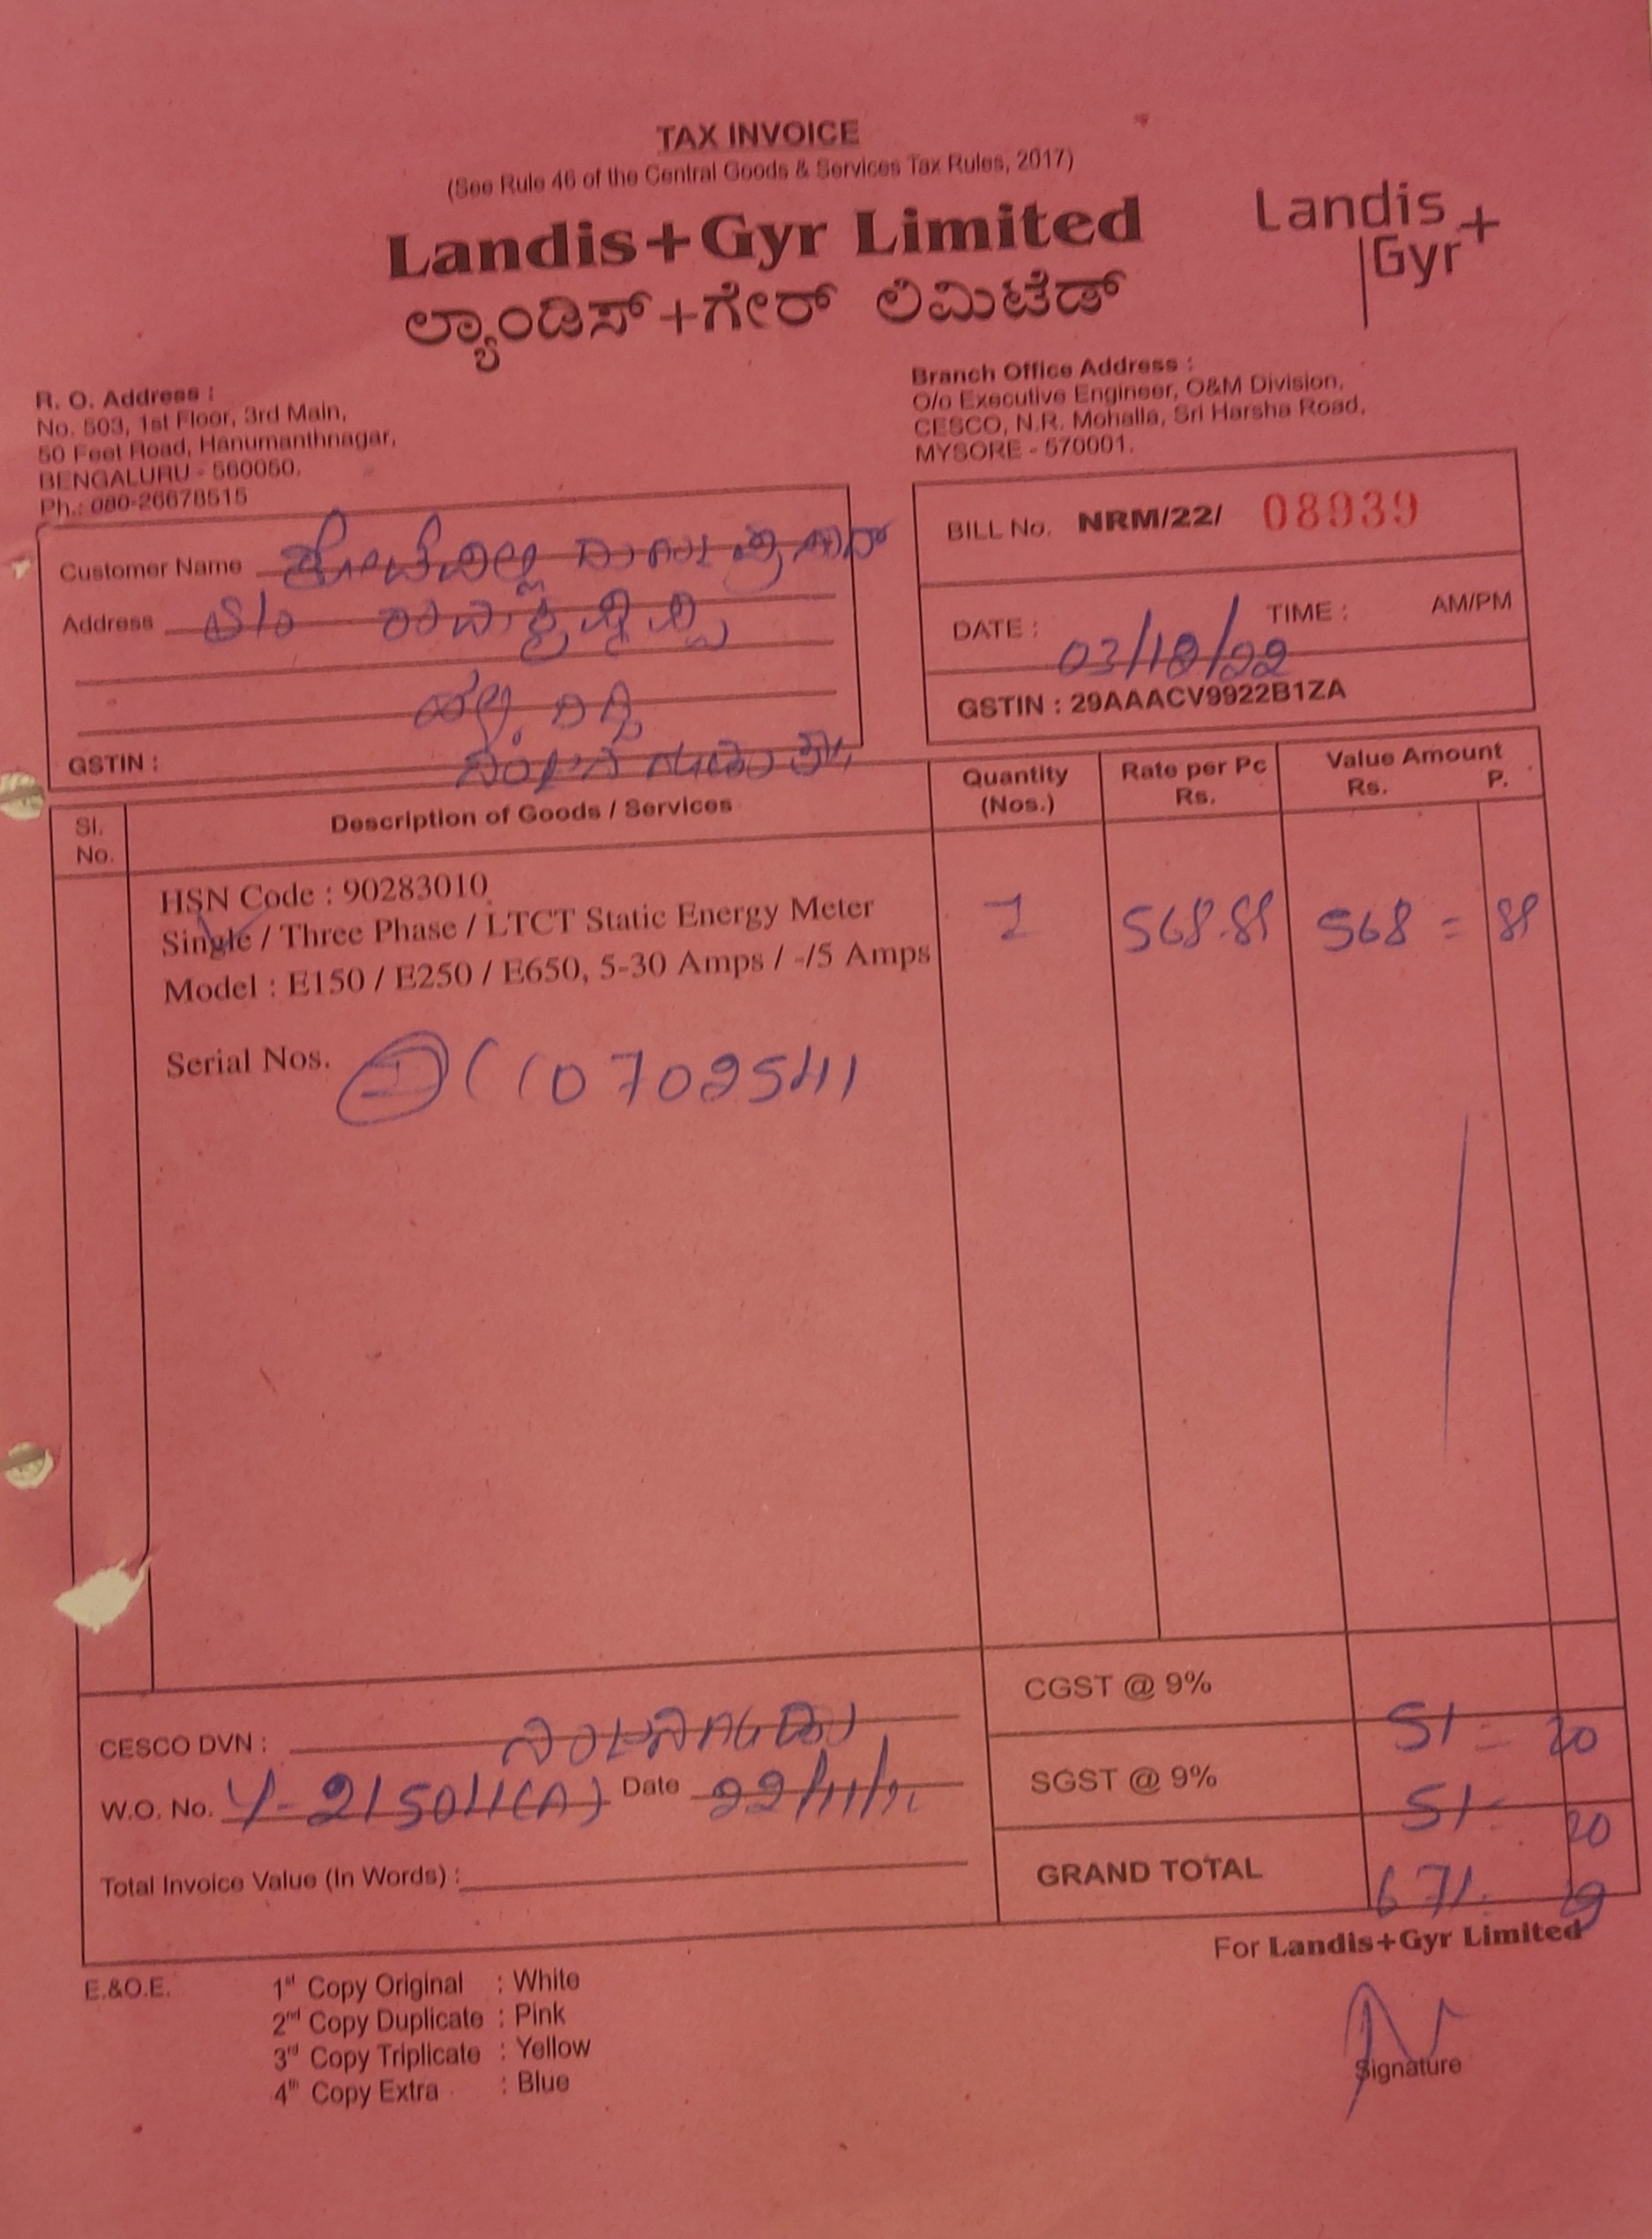 TAX INVOICE
(See Rule 46 of the Central Goods & Services Tax Rules, 2017)
Landis+Gyr Limited
ಲ್ಯಾಂಡಿಸ್+ಗೇರ್ ಲಿಮಿಟೆಡ್
Landis+
Gyr
R. O. Address :
No. 503, 1st Floor, 3rd Main,
50 Feet Road, Hanumanthnagar,
BENGALURU - 560050.
Ph.: 080-26678515
Branch Office Address :
O/o Executive Engineer, O&M Division,
CESCO, N.R. Mohalla, Sri Harsha Road,
MYSORE - 570001.
Customer Name
Address S/o
GSTIN :
BILL No. NRM/22/ 08939
DATE : 03/12/22 TIME : AM/PM
GSTIN : 29AAACV9922B1ZA
Sl. No. Description of Goods / Services Quantity (Nos.) Rate per Pc Rs. Value Amount Rs. P.
HSN Code : 90283010
Single / Three Phase / LTCT Static Energy Meter 1 568.81 568 = 81
Model : E150 / E250 / E650, 5-30 Amps / -/5 Amps
Serial Nos.
CGST @ 9% 51 - 20
CESCO DVN : ನಂಜನಗೂಡು
SGST @ 9% 51 - 20
W.O. No. Date
GRAND TOTAL 671.
Total Invoice Value (In Words) :
For Landis+Gyr Limited
E.&O.E.
1st Copy Original : White
2nd Copy Duplicate : Pink
3rd Copy Triplicate : Yellow
4th Copy Extra : Blue
Signature